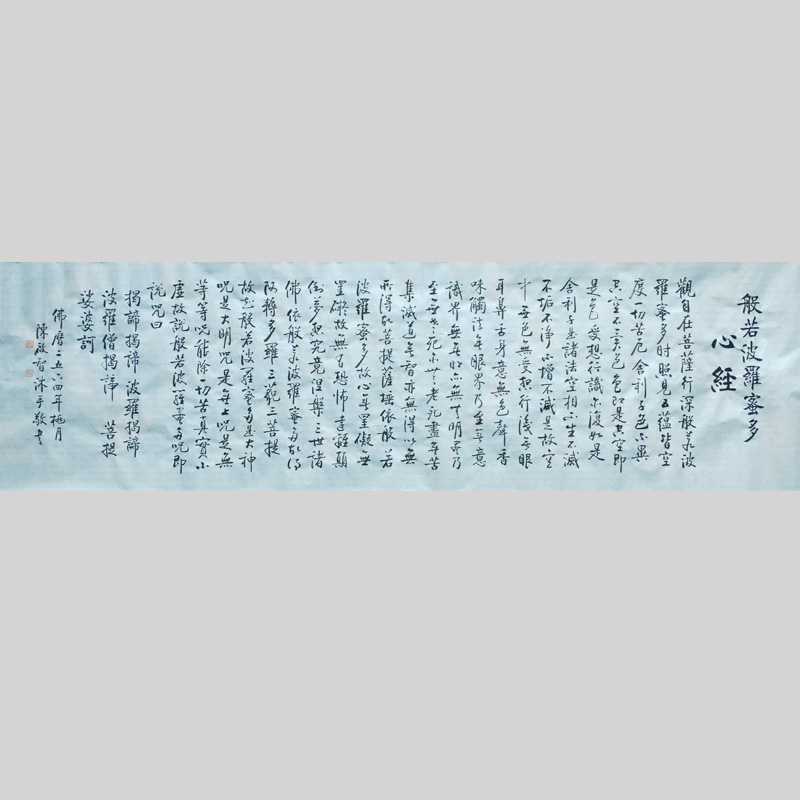 般若波羅蜜多
心経
觀自在菩薩行深般若波
羅蜜多时照見五蕴皆空
度一切苦厄舍利子色不異
空空不異色色即是空空即
是色受想行識亦復如是
舍利子是諸法空相不生不滅
不垢不淨不增不減是故空
中无色無受想行識无眼
耳鼻舌身意無色聲香
味觸法无眼界乃至无意
識界無无明亦無无明盡乃
至無老死亦無老死盡无苦
集滅道无智亦無得以無
所得故菩提薩埵依般若
波羅蜜多故心无罣礙無
罣礙故無有恐怖遠離顛
倒夢想究竟涅槃三世諸
佛依般若波羅蜜多故得
阿耨多羅三藐三菩提
故知般若波羅蜜多是大神
咒是大明咒是无上咒是無
等等咒能除一切苦真實不
虛故說般若波羅蜜多咒即
說咒曰
揭諦揭諦 波羅揭諦
波羅僧揭諦 菩提
娑婆訶
佛曆二五六四年 月
陳 智沐手敬書